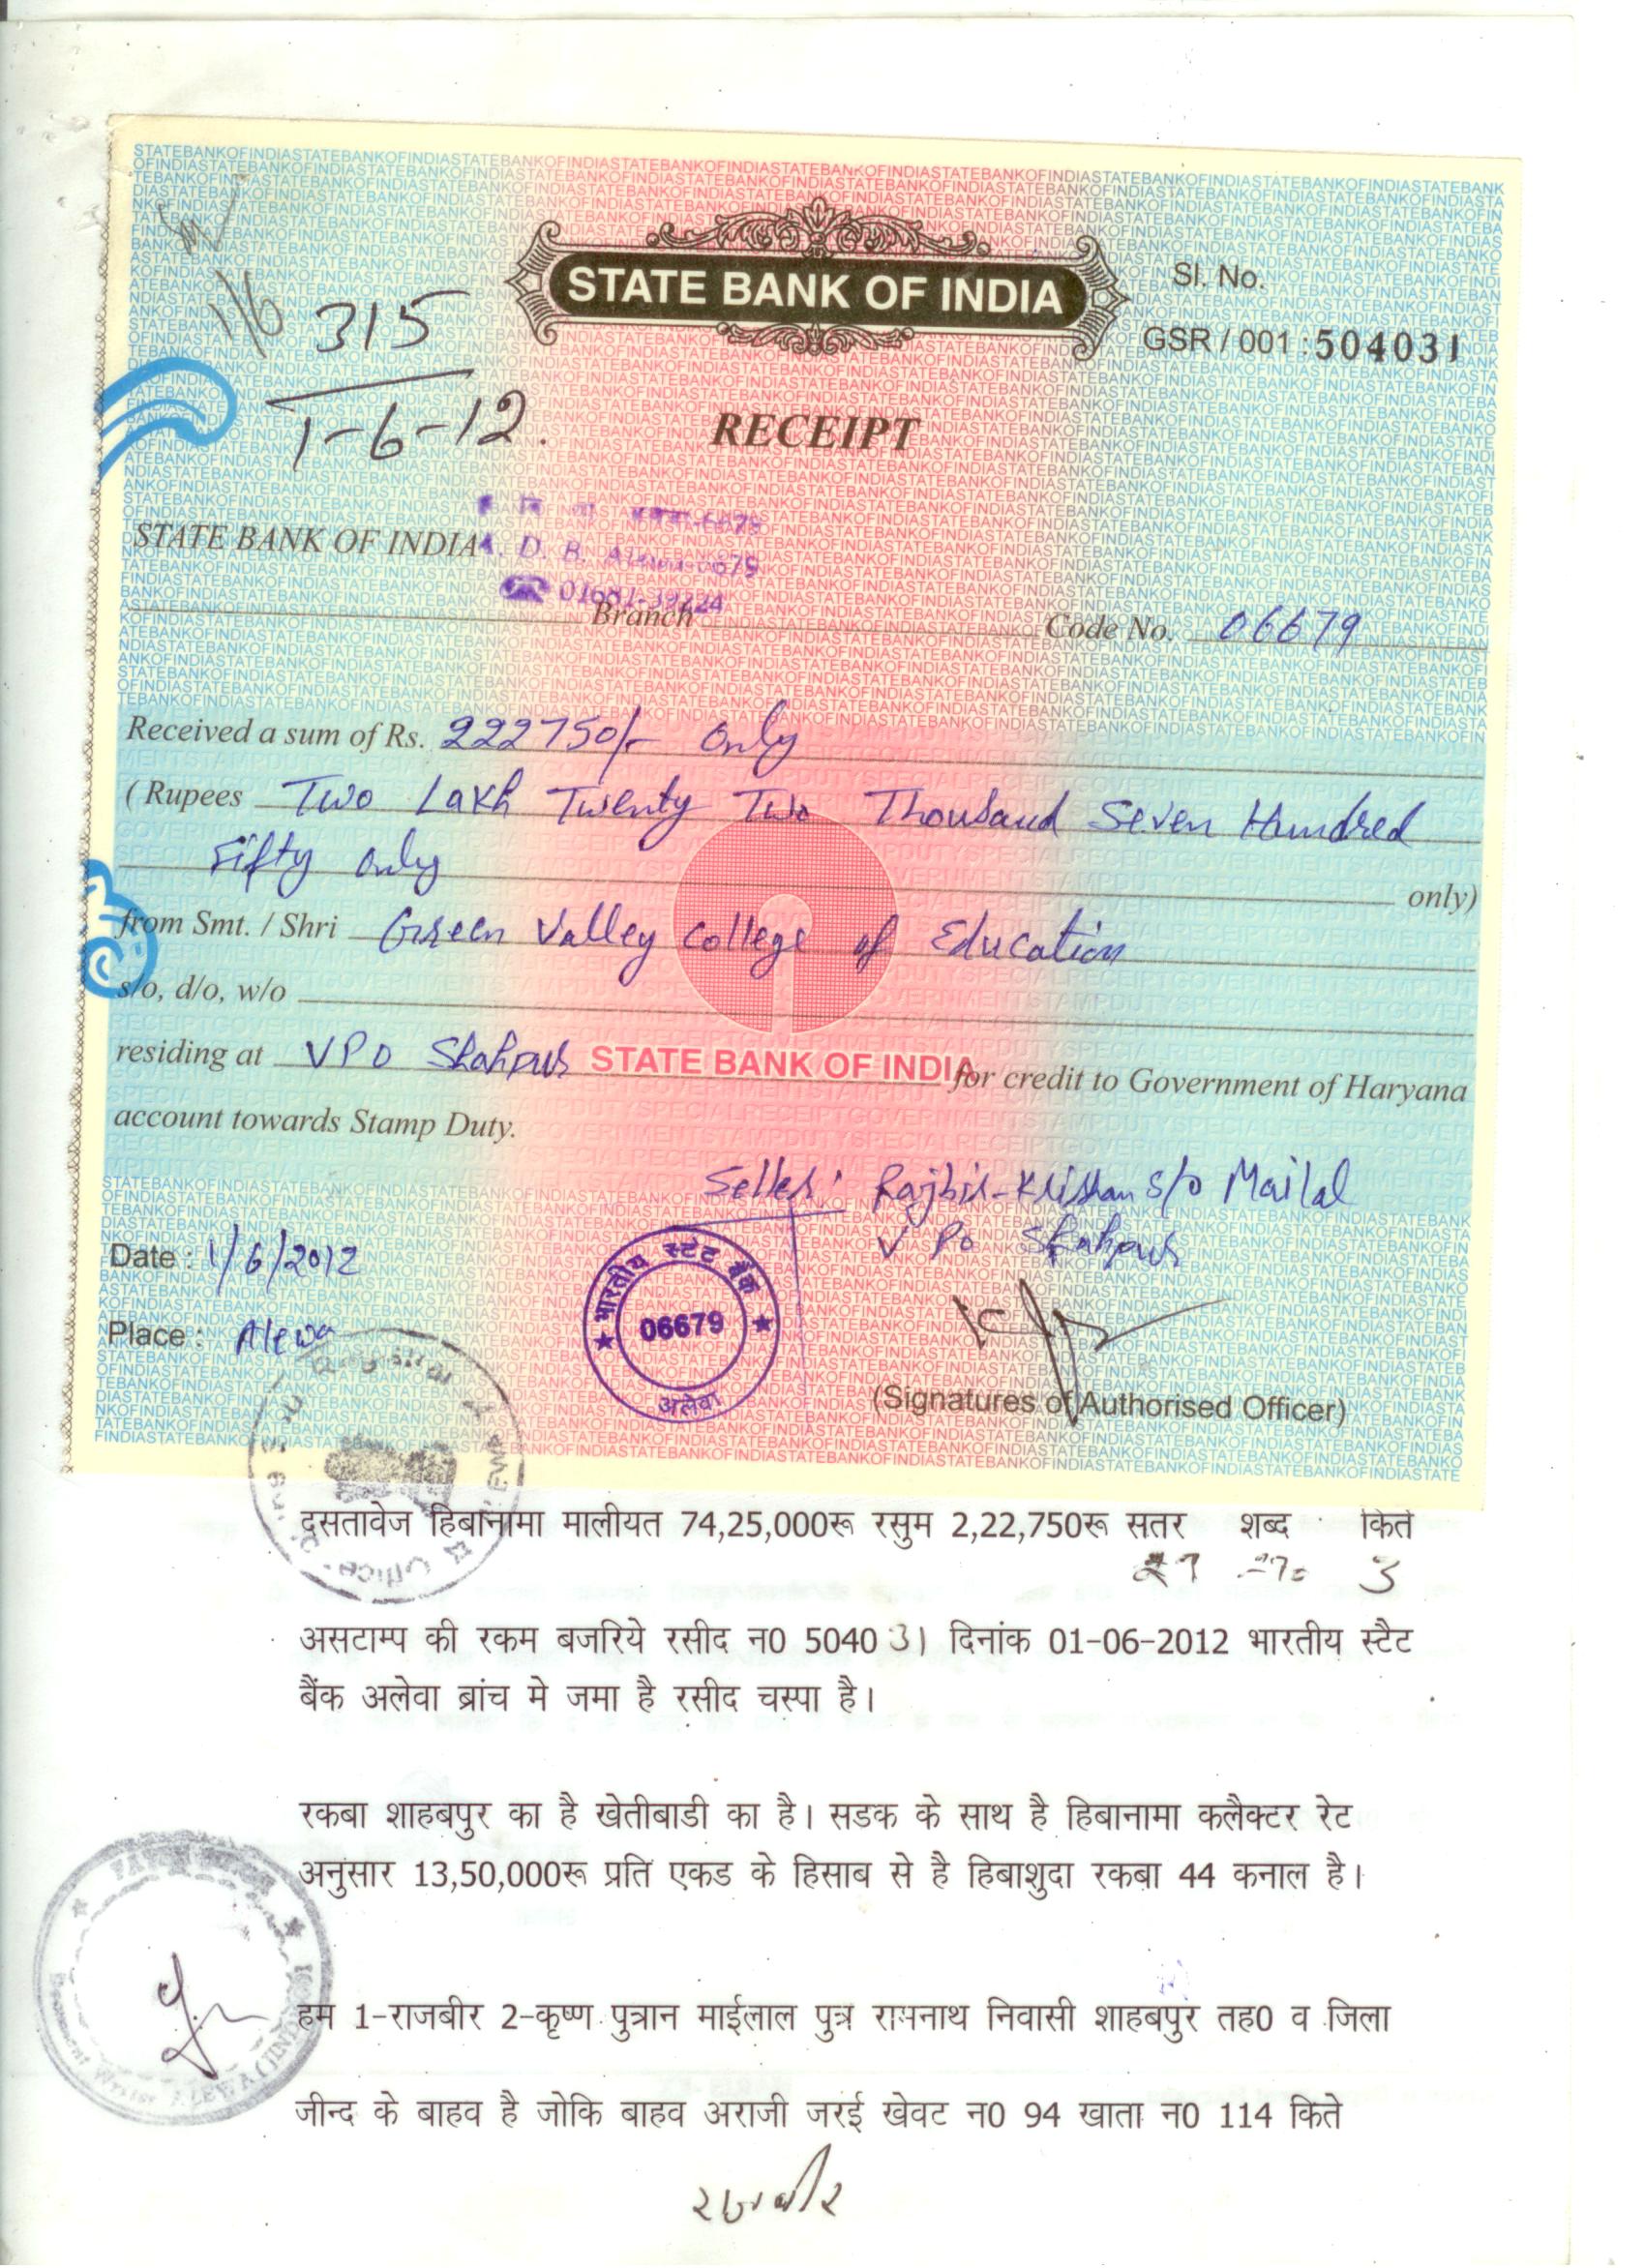 STATE BANK OF INDIA
Sl. No.
GSR / 001 : 504031
1/6
315
1-6-12.
RECEIPT
A. D. B. Alewa-6679
STATE BANK OF INDIA
Branch Code No. 06679
Received a sum of Rs. 222750/- only
( Rupees Two Lakh Twenty Two Thousand Seven Hundred
Fifty only only)
from Smt. / Shri Green Valley College of Education
s/o, d/o, w/o
residing at VPO Shahpur STATE BANK OF INDIA for credit to Government of Haryana
account towards Stamp Duty.
Seller: Rajbir-Krishan s/o Mailal
VPO Shahpur
Date : 1/6/2012
भारतीय स्टेट बैंक
06679
अलेवा
Place : Alewa
(Signatures of Authorised Officer)
दसतावेज हिबानामा मालीयत 74,25,000रू रसुम 2,22,750रू सतर शब्द किते
3
असटाम्प की रकम बजरिये रसीद न0 504031 दिनांक 01-06-2012 भारतीय स्टैट
बैंक अलेवा ब्रांच मे जमा है रसीद चस्पा है।
रकबा शाहबपुर का है खेतीबाडी का है। सडक के साथ है हिबानामा कलैक्टर रेट
अनुसार 13,50,000रू प्रति एकड के हिसाब से है हिबाशुदा रकबा 44 कनाल है।
हम 1-राजबीर 2-कृष्ण पुत्रान माईलाल पुत्र रामनाथ निवासी शाहबपुर तह0 व जिला
जीन्द के बाहव है जोकि बाहव अराजी जरई खेवट न0 94 खाता न0 114 किते
राजबीर